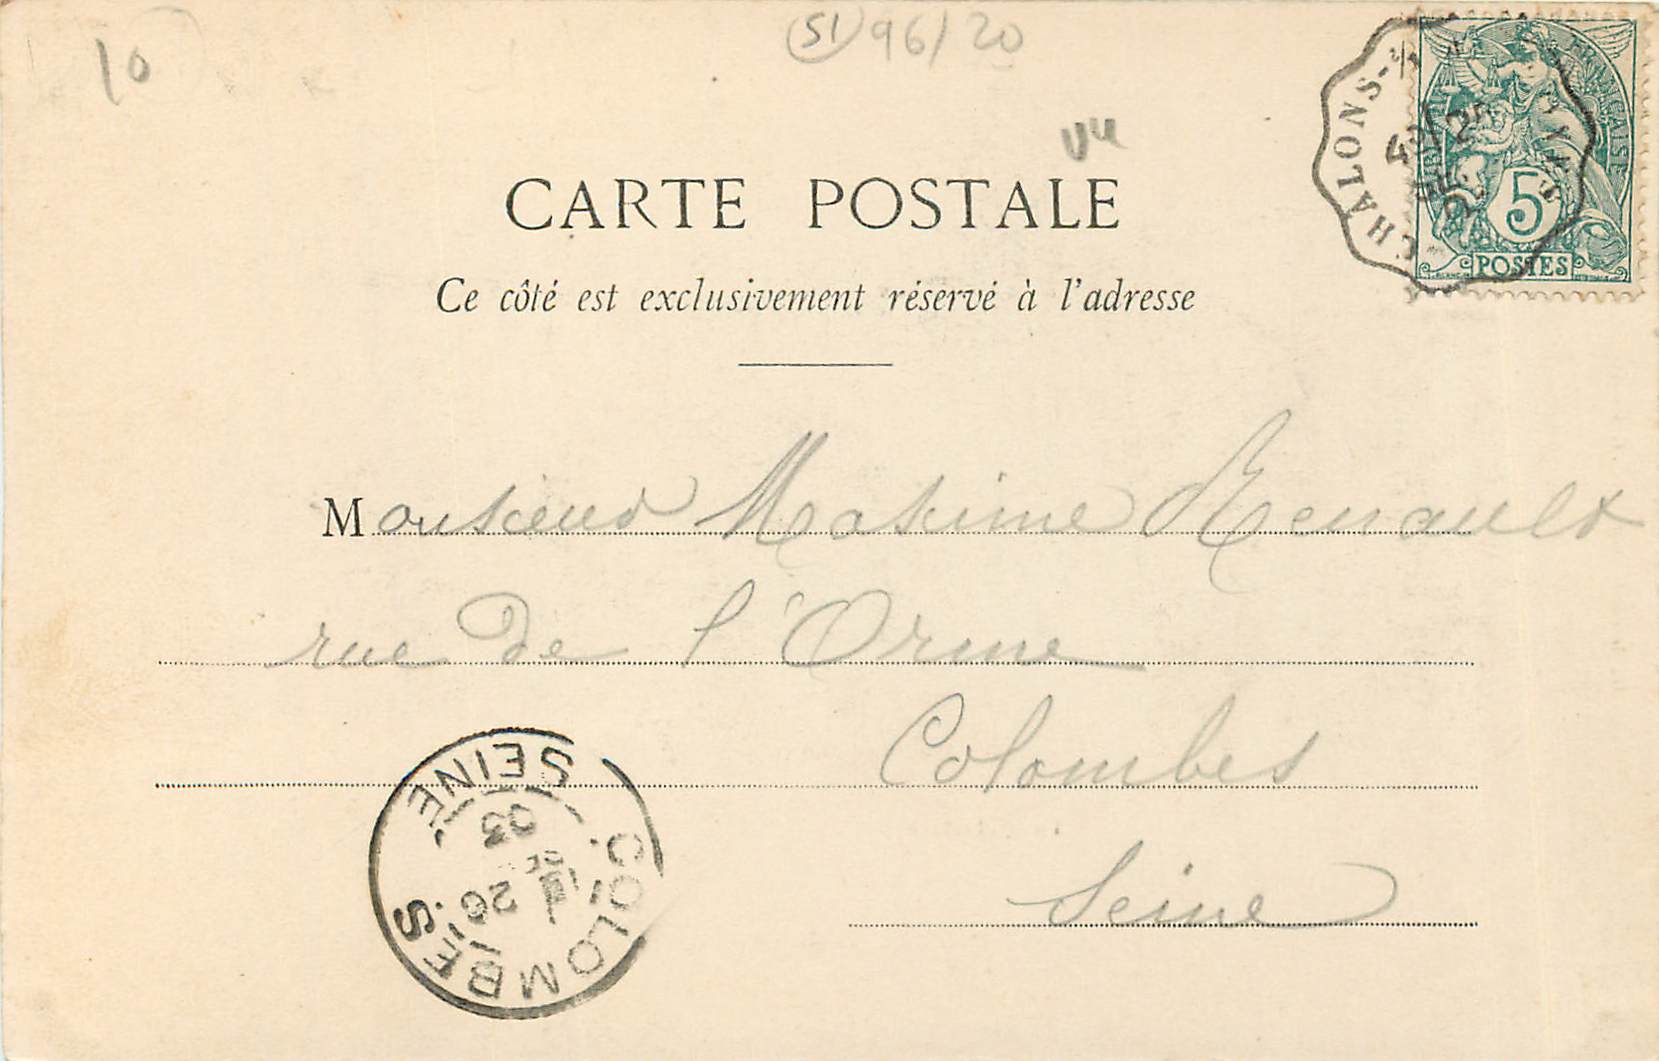 10
51 96/20
vu
RÉPUBLIQUE FRANÇAISE
5
POSTES
CHALONS-
CARTE POSTALE
Ce côté est exclusivement réservé à l'adresse
Monsieur Maxime Renault
rue de l'Orme
Colombes
Seine
COLOMBES
SEINE
26
03